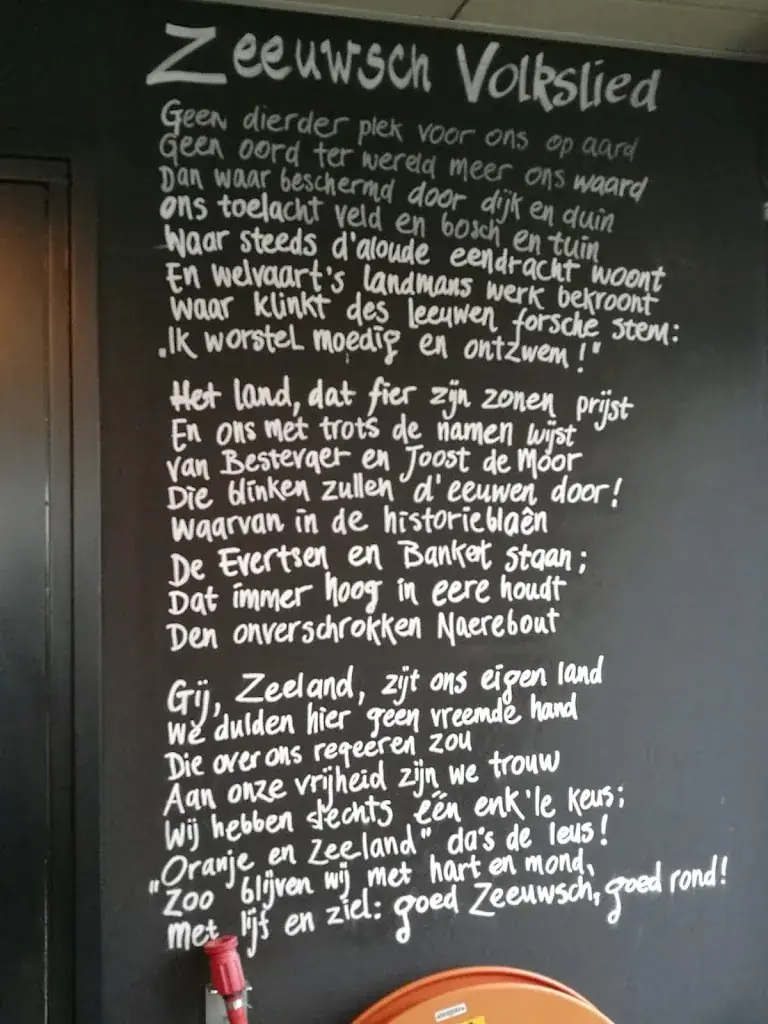 Zeeuwsch Volkslied
Geen dierder plek voor ons op aard
Geen oord ter wereld meer ons waard
Dan waar beschermd door dijk en duin
ons toelacht veld en bosch en tuin
Waar steeds d'aloude eendracht woont
En welvaart's landmans werk bekroont
Waar klinkt des leeuwen forsche stem:
„Ik worstel moedig en ontzwem!"
Het land, dat fier zijn zonen prijst
En ons met trots de namen wijst
Van Bestevaer en Joost de Moor
Die blinken zullen d'eeuwen door!
Waarvan in de historieblaên
De Evertsen en Banket staan;
Dat immer hoog in eere houdt
Den onverschrokken Naerebout
Gij, Zeeland, zijt ons eigen land
We dulden hier geen vreemde hand
Die over ons regeeren zou
Aan onze vrijheid zijn we trouw
Wij hebben slechts één enk'le keus;
"Oranje en Zeeland" da's de leus!
Zoo blijven wij met hart en mond,
Met lijf en ziel: goed Zeeuwsch, goed rond!